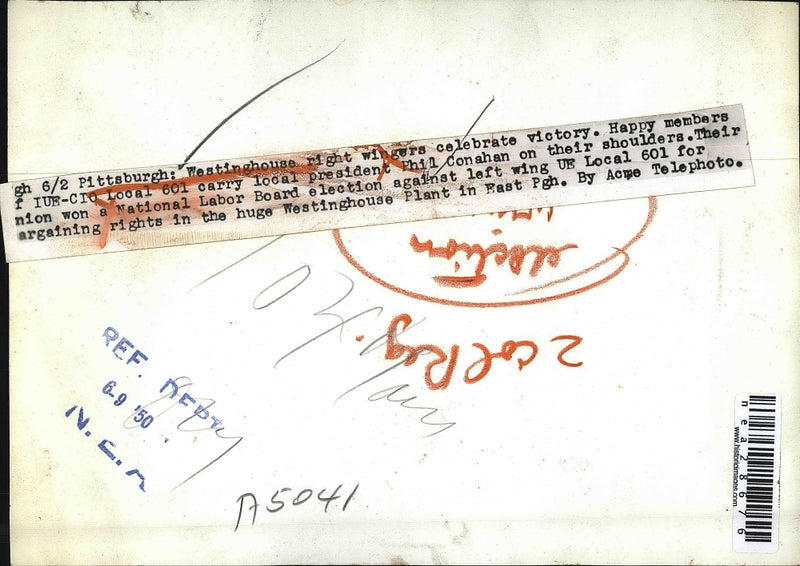 gh 6/2 Pittsburgh: Westinghouse right wingers celebrate victory. Happy members
f IUE-CIO Local 601 carry local president Phil Conahan on their shoulders.Their
nion won a National Labor Board election against left wing UE Local 601 for
argaining rights in the huge Westinghouse Plant in East Pgh. By Acme Telephoto.
election
2 col Reg.
REF. DEPT.
6-9 '50
N. E. A
A5041
nea28676
www.historicimages.com